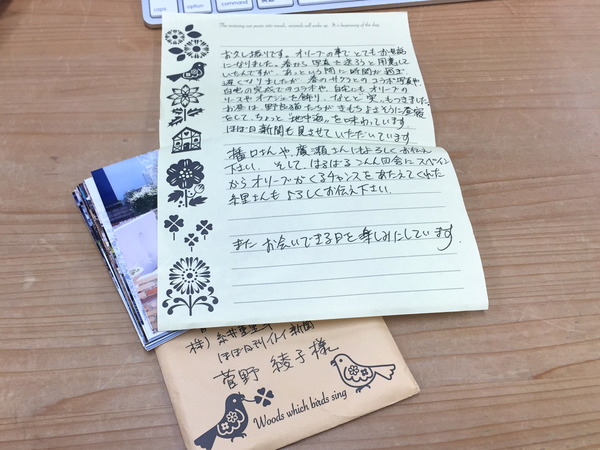 caps
option
command
The twittering was poetic into woods, animals will wake up. It's beginning of the day.
お久し振りです。オリーブの事でとてもお世話
になりました。春から写真を送ろうと用意して
いたんですが、あっという間に時間が過ぎ
遅くなりましたが、春のサクラとのコラボ写真や、
白色の完成でのコラボや、自宅にもオリーブの
リースやオブジェを飾り、などと実もつきました。
お昼は野良猫たちがきもちよさそうに昼寝
をして、ちょっと"地中海"を味わっています。
ほぼ日新聞も見させていただいています。
橋口さんや、廣瀬さんにもよろしくお伝え
下さい。そして、はるばるこんな田舎にスペイン
からオリーブがくるチャンスをあたえてくれた
糸里さんもよろしくお伝え下さい。
また お会いできる日を楽しみにしています。
株) 糸井重里
ほぼ日刊イトイ新聞
菅野 綾子様
Woods which birds sing